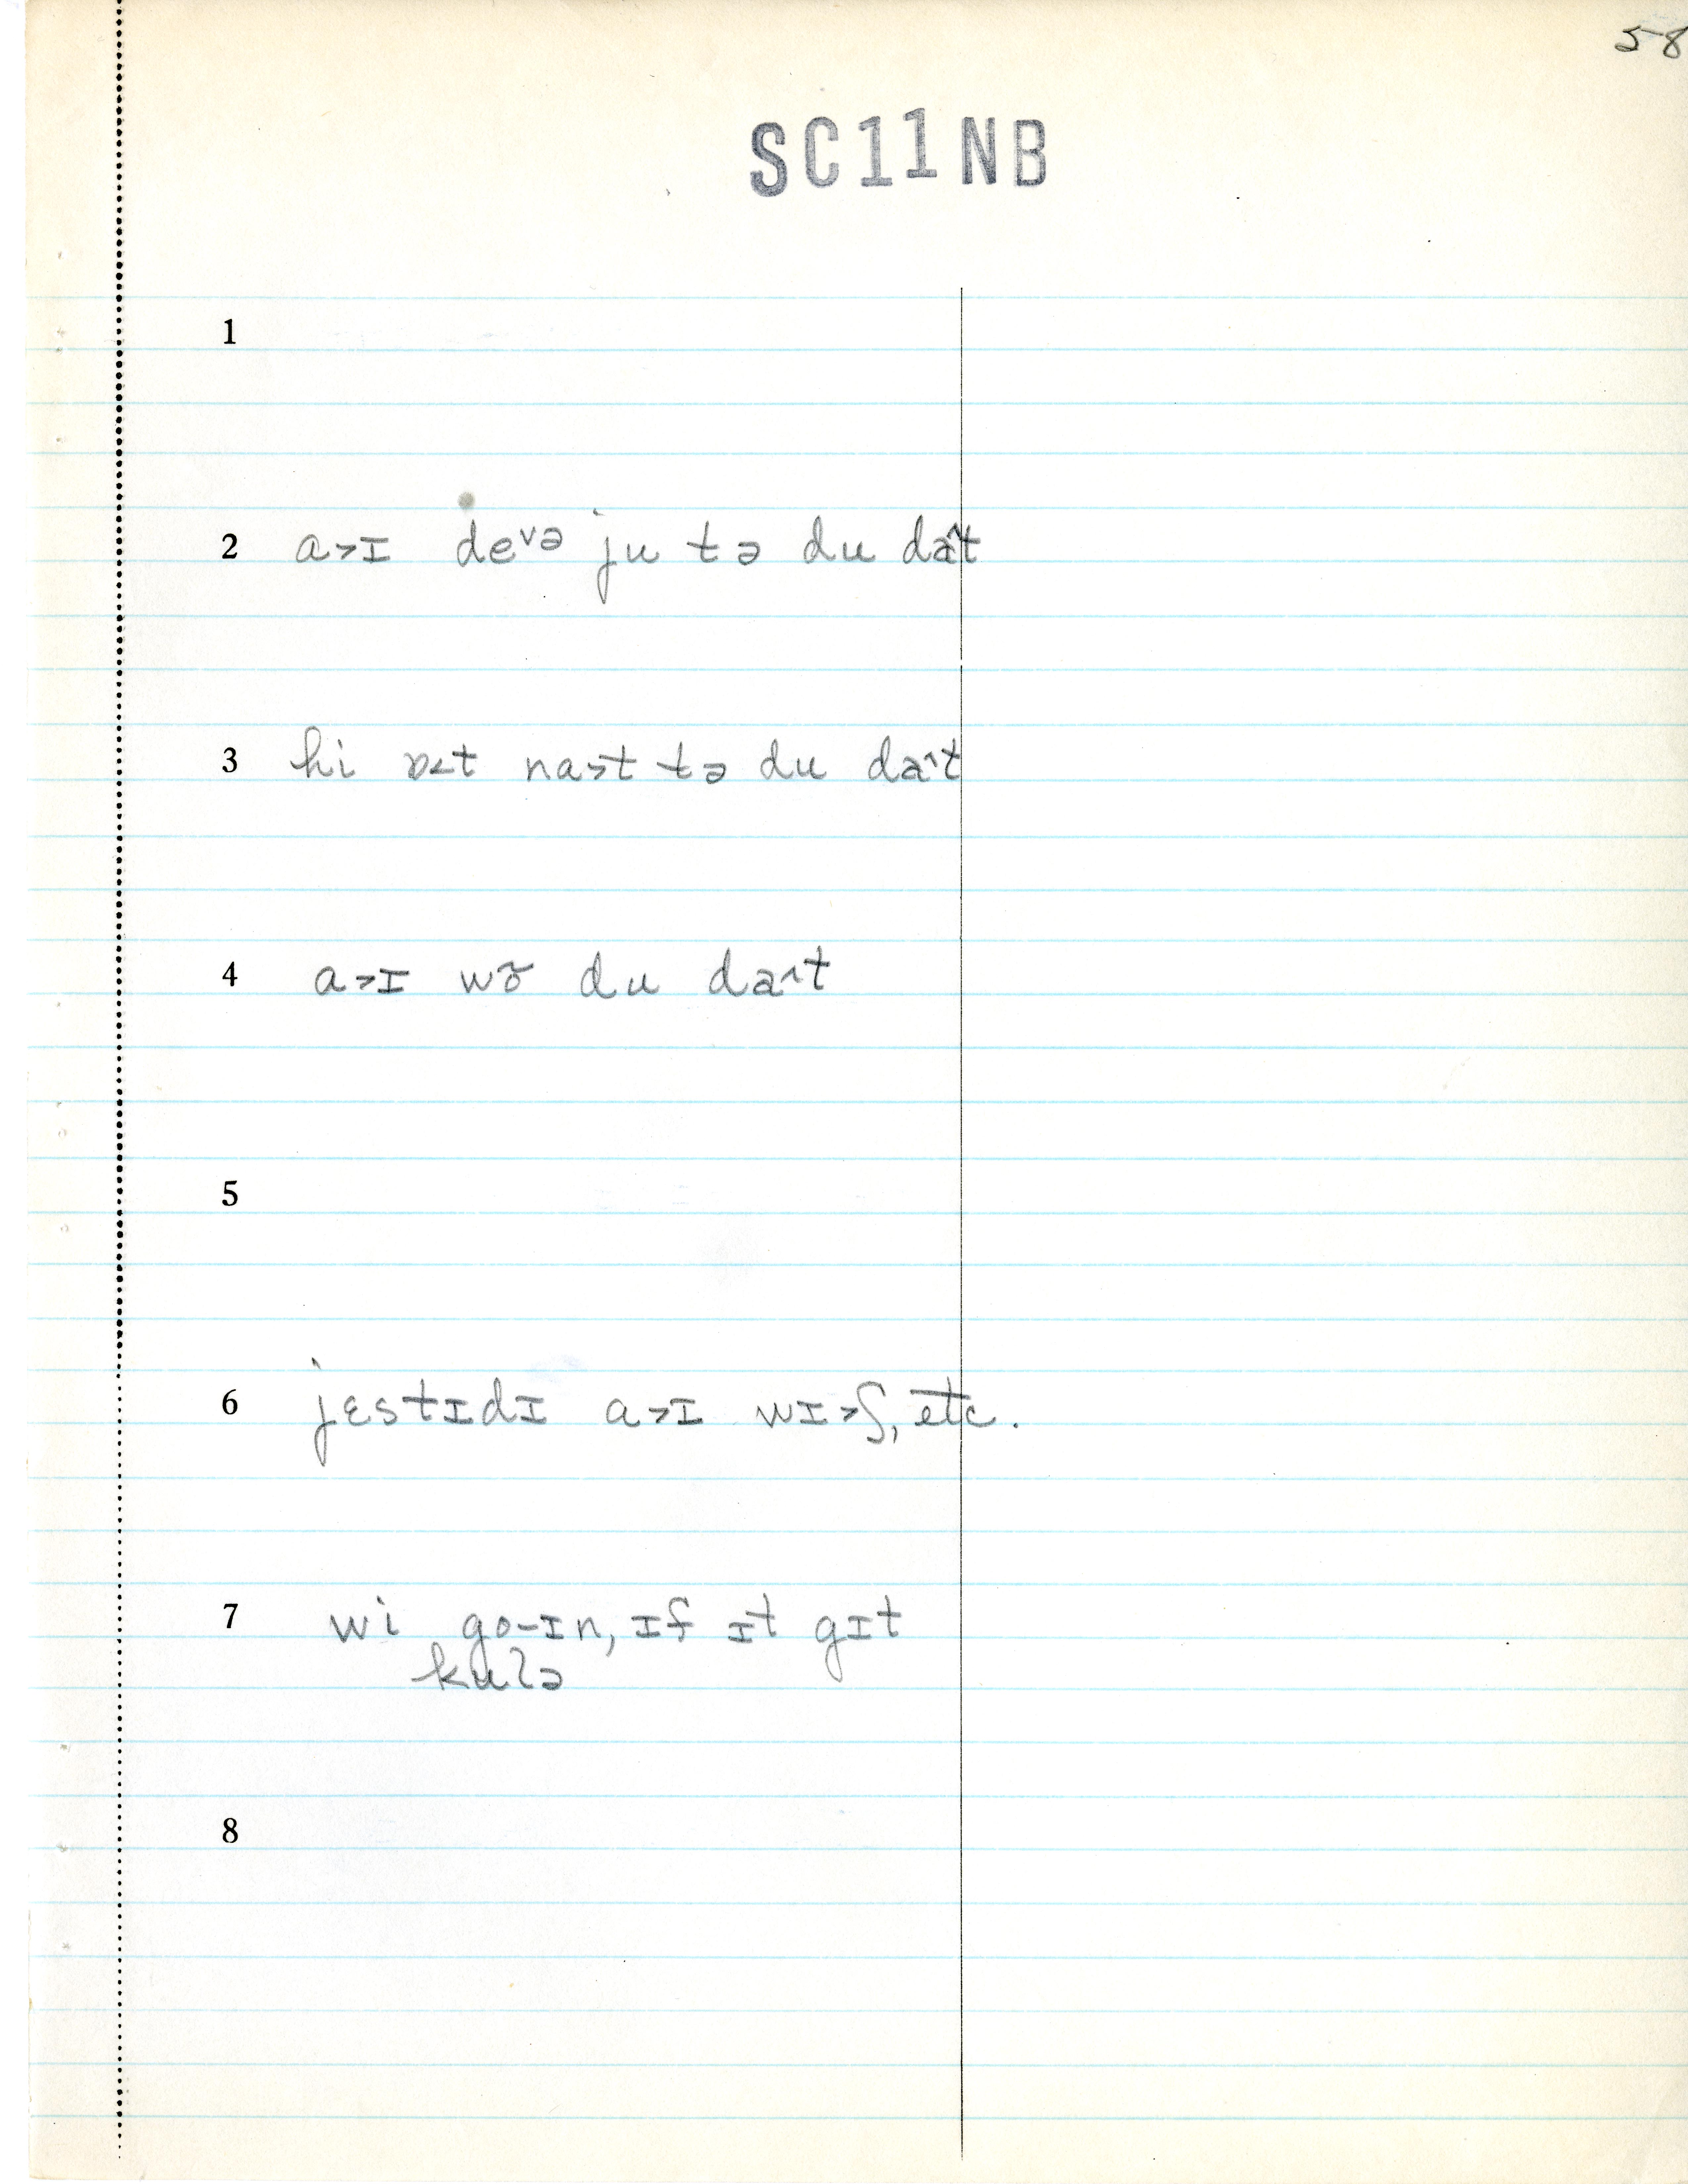 58
SC11NB
1
2 a˃ɪ devə ju tə du da^t
3 hi ɒ˂t na˃t tə du da^t
4 a˃ɪ wõ du da^t
5
6 jɛstɪdɪ a˃ɪ wɪ˃ʃ, etc.
7 wi go-ɪn, ɪf ɪt gɪt
kulə
8